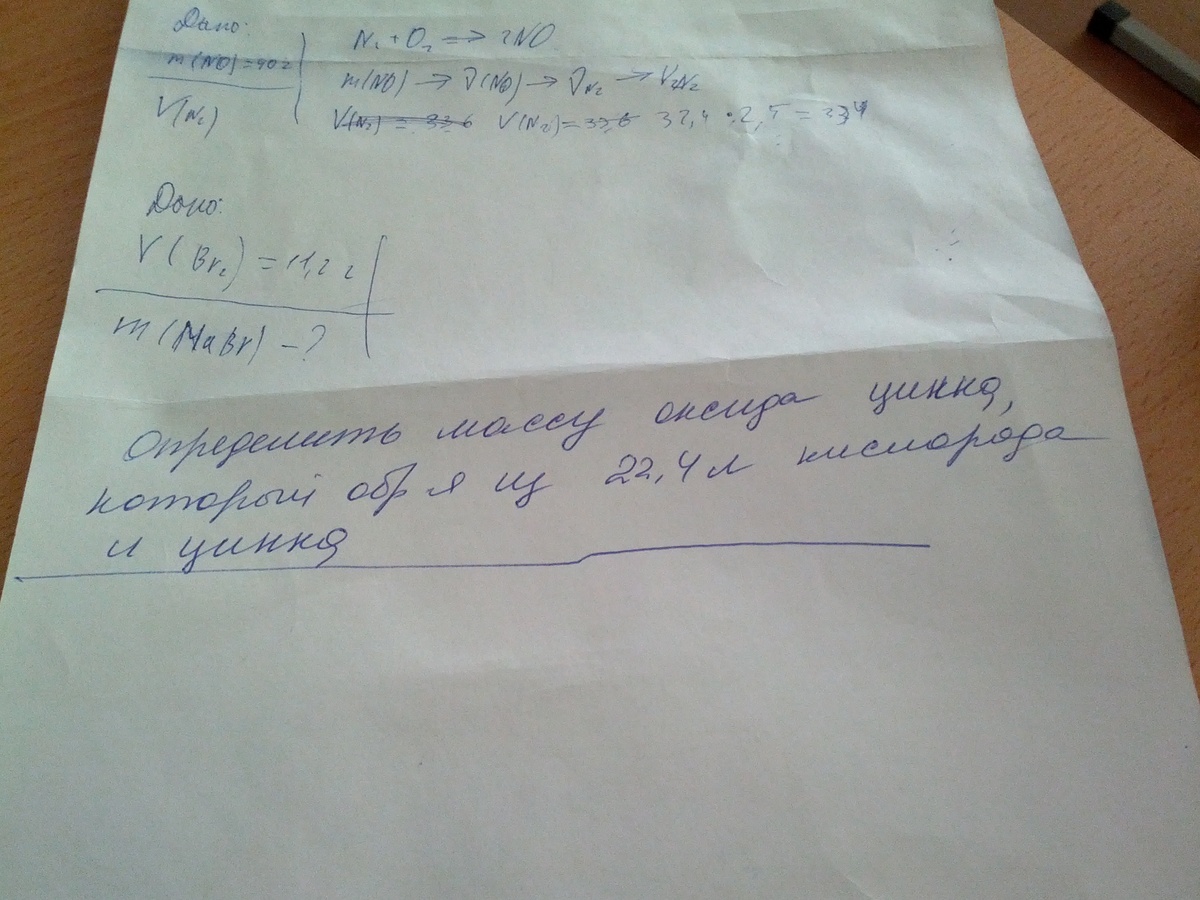 Дано:
m(NO)=90г
V(N₂)
N₂ + O₂ => 2NO
m(NO) → ν(NO) → ν N₂ → V N₂
V(N₂) = 33,6 V(N₂)=33,6 32,4 · 2,5 =
Дано:
V(Br₂) = 11,2 г
m(NaBr) - ?
Определить массу оксида цинка,
который обр я из 22,4 л кислорода
и цинка